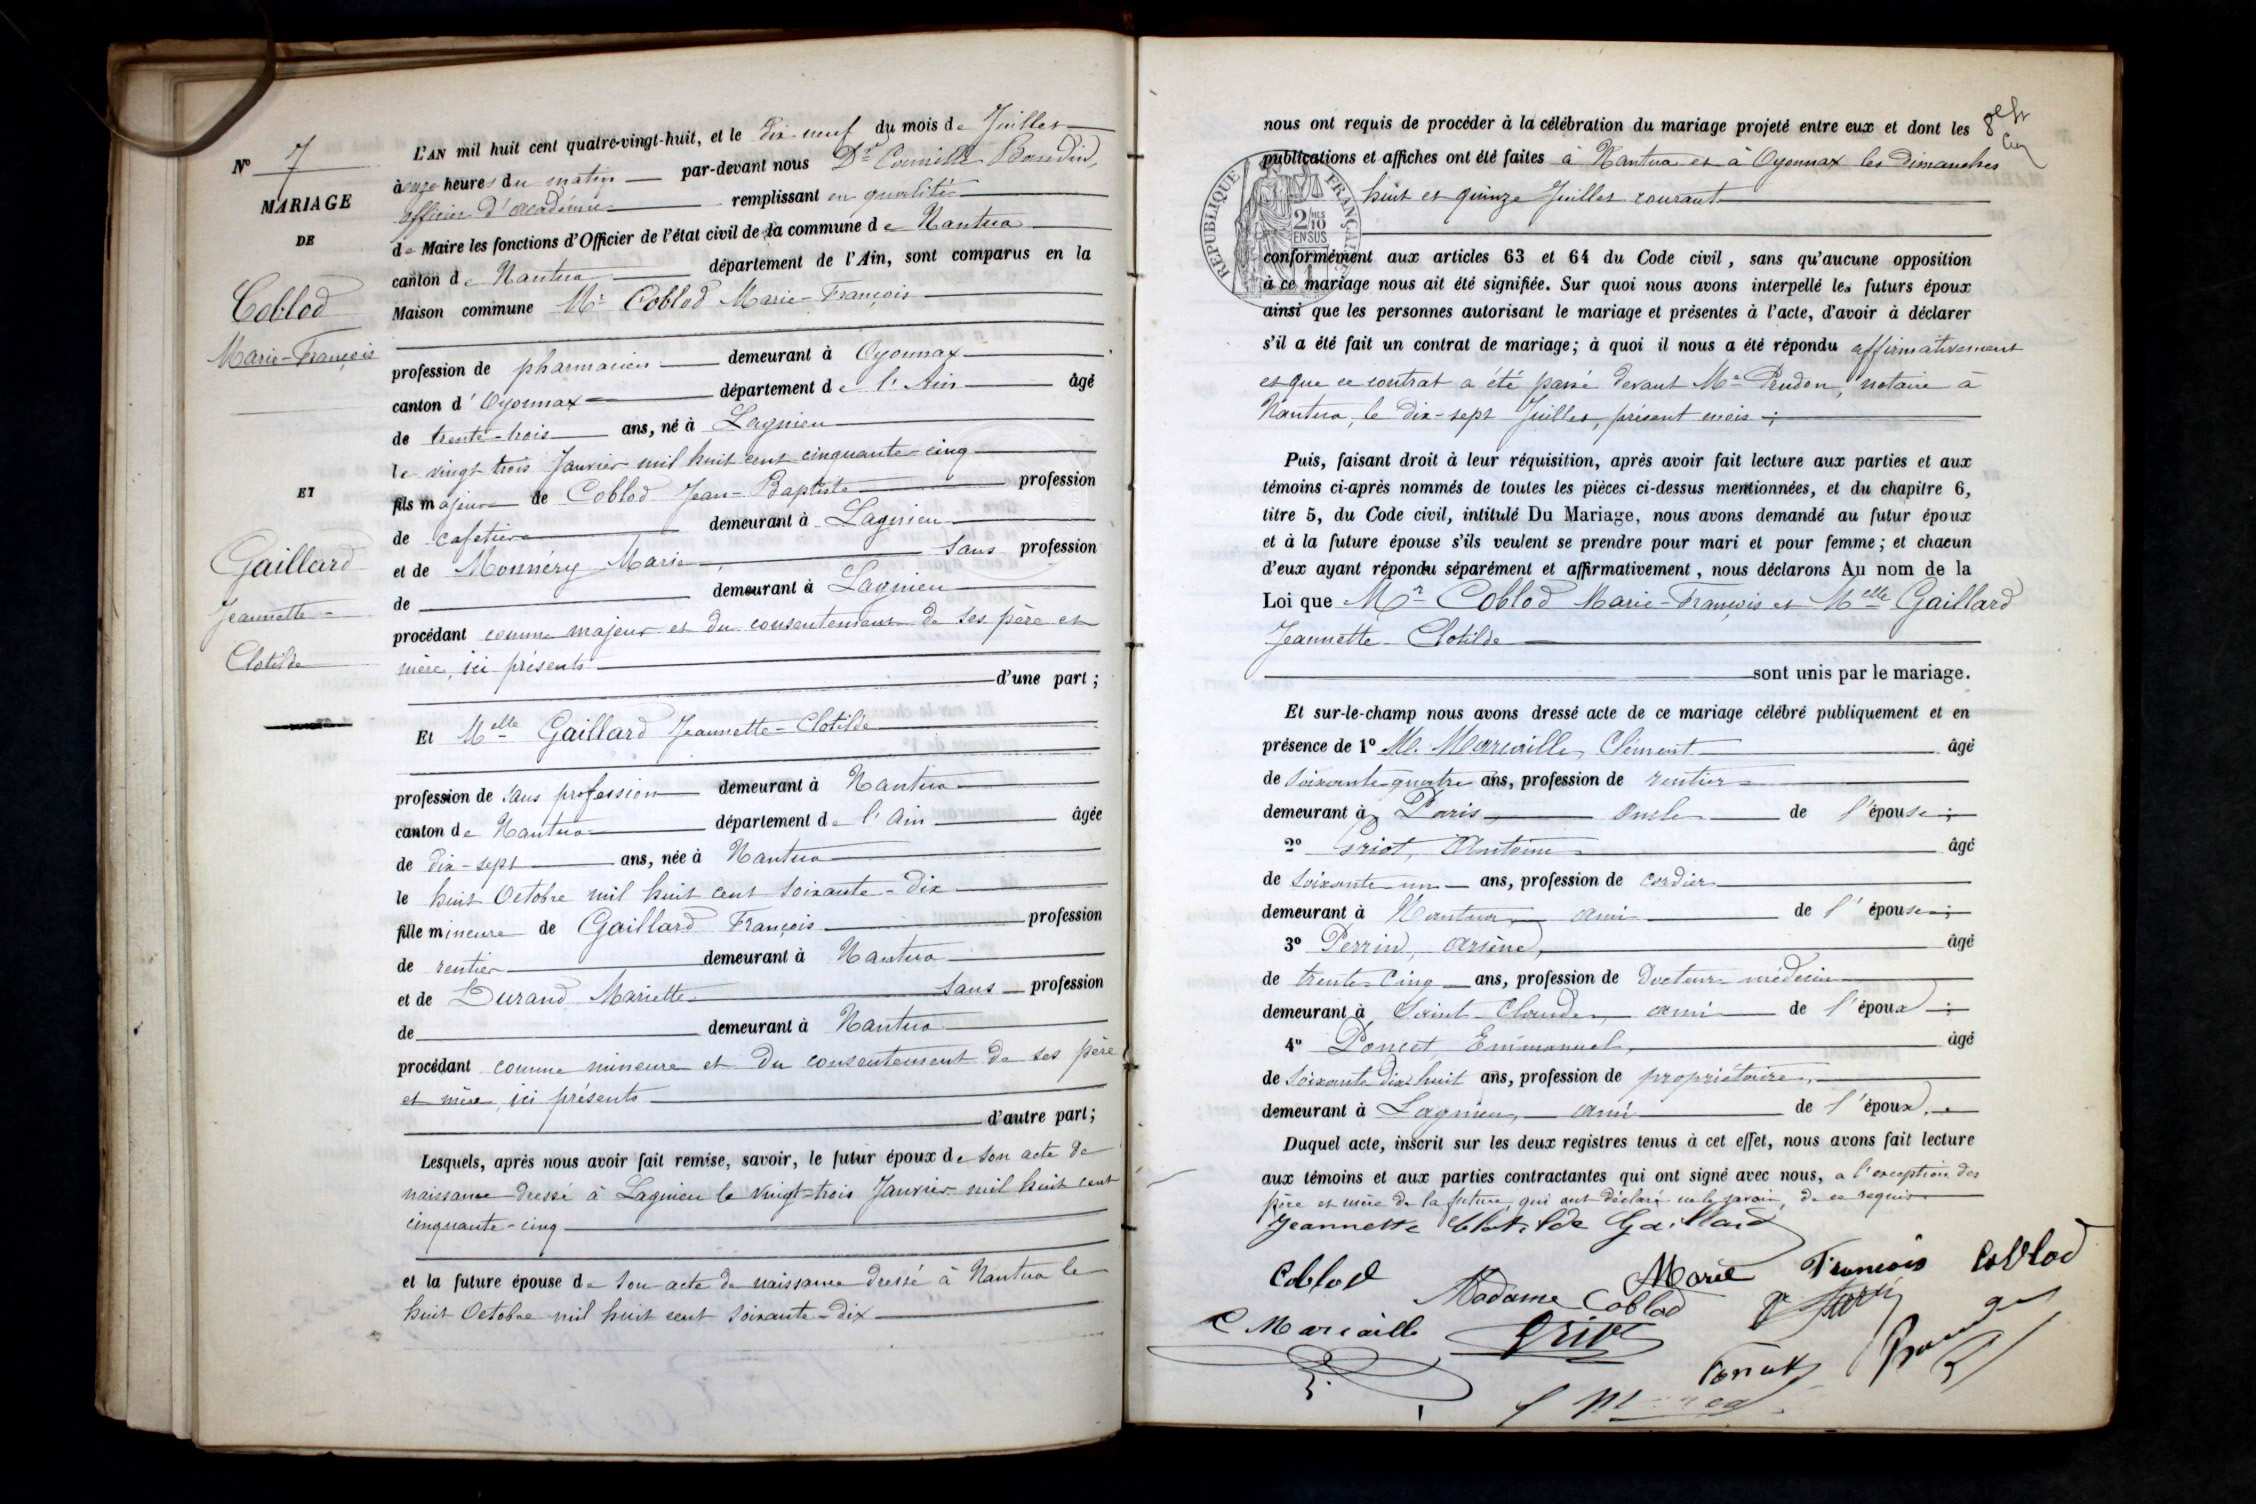 N° 7
MARIAGE
DE
Coblod
Marie-François
ET
Gaillard
Jeannette-
Clotilde
L'AN mil huit cent quatre-vingt-huit, et le dix-neuf du mois de Juillet
à onze heures du matin par-devant nous Dr Camille Baudin,
officier d'académie remplissant en qualité
de Maire les fonctions d'Officier de l'état civil de la commune de Nantua
canton de Nantua département de l'Ain, sont comparus en la
Maison commune Mr Coblod Marie-François
profession de pharmacien demeurant à Oyonnax
canton d'Oyonnax département de l'Ain âgé
de trente-trois ans, né à Lagnieu
le vingt trois Janvier mil huit cent cinquante-cinq
fils majeur de Coblod Jean-Baptiste profession
de cafetier demeurant à Lagnieu
et de Monnéry Marie sans profession
de demeurant à Lagnieu
procédant comme majeur et du consentement de ses père et
mère, ici présents
d'une part;
Et Melle Gaillard Jeannette-Clotilde
profession de sans profession demeurant à Nantua
canton de Nantua département de l'Ain âgée
de dix-sept ans, née à Nantua
le huit Octobre mil huit cent soixante-dix
fille mineure de Gaillard François profession
de rentier demeurant à Nantua
et de Durand Mariette sans profession
de demeurant à Nantua
procédant comme mineure et du consentement de ses père
et mère, ici présents
d'autre part;
Lesquels, après nous avoir fait remise, savoir, le futur époux de son acte de
naissance dressé à Lagnieu le vingt-trois Janvier mil huit cent
cinquante-cinq
et la future épouse de son acte de naissance dressé à Nantua le
huit Octobre mil huit cent soixante-dix
nous ont requis de procéder à la célébration du mariage projeté entre eux et dont les
publications et affiches ont été faites à Nantua et à Oyonnax les dimanches
huit et quinze Juillet courant
RÉPUBLIQUE FRANÇAISE
2/10
EN SUS
conformément aux articles 63 et 64 du Code civil, sans qu'aucune opposition
à ce mariage nous ait été signifiée. Sur quoi nous avons interpellé les futurs époux
ainsi que les personnes autorisant le mariage et présentes à l'acte, d'avoir à déclarer
s'il a été fait un contrat de mariage; à quoi il nous a été répondu affirmativement
et que ce contrat a été passé devant Me Prudon, notaire à
Nantua, le dix-sept Juillet, présent mois;
Puis, faisant droit à leur réquisition, après avoir fait lecture aux parties et aux
témoins ci-après nommés de toutes les pièces ci-dessus mentionnées, et du chapitre 6,
titre 5, du Code civil, intitulé Du Mariage, nous avons demandé au futur époux
et à la future épouse s'ils veulent se prendre pour mari et pour femme; et chacun
d'eux ayant répondu séparément et affirmativement, nous déclarons Au nom de la
Loi que Mr Coblod Marie-François et Melle Gaillard
Jeannette-Clotilde
sont unis par le mariage.
Et sur-le-champ nous avons dressé acte de ce mariage célébré publiquement et en
présence de 1° M. Marcaille, Clément âgé
de soixante-quatre ans, profession de rentier
demeurant à Paris oncle de l'épouse;
2° Griot, Antoine âgé
de soixante-un ans, profession de cordier
demeurant à Nantua ami de l'épouse;
3° Perrin, Arsène, âgé
de trente-cinq ans, profession de Docteur médecin
demeurant à Saint-Claude, ami de l'époux;
4° Poncet, Emmanuel, âgé
de soixante dix huit ans, profession de propriétaire,
demeurant à Lagnieu, ami de l'époux.
Duquel acte, inscrit sur les deux registres tenus à cet effet, nous avons fait lecture
aux témoins et aux parties contractantes qui ont signé avec nous, à l'exception des
père et mère de la future, qui ont déclaré ne le savoir, de ce requis
Jeannette Clotilde Gaillard
Coblod Marie François Coblod
Madame Coblod
C Marcaille Griot